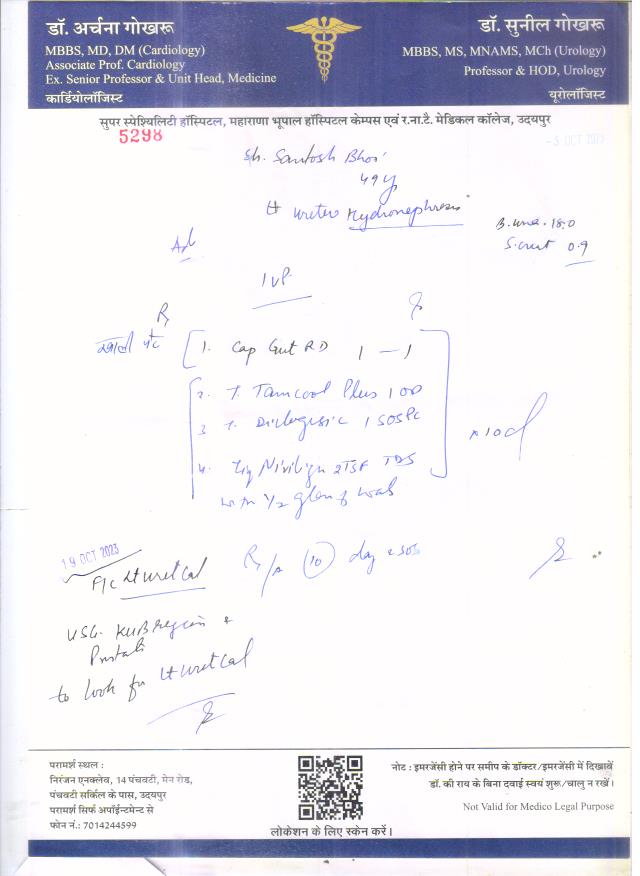 डॉ. अर्चना गोखरू
MBBS, MD, DM (Cardiology)
Associate Prof. Cardiology
Ex. Senior Professor & Unit Head, Medicine
कार्डियोलॉजिस्ट
डॉ. सुनील गोखरू
MBBS, MS, MNAMS, MCh (Urology)
Professor & HOD, Urology
यूरोलॉजिस्ट
सुपर स्पेश्यिलिटी हॉस्पिटल, महाराणा भूपाल हॉस्पिटल केम्पस एवं र.ना.टै. मेडिकल कॉलेज, उदयपुर
5294
-3 OCT 2023
Sh. Santosh Bhoi
49y
Lt uretero Hydronephrosis
B. urea - 18.0
S. creat 0.9
Ad
IVP
Rx
खाली पेट
1. Cap Gut RD 1 — 1
2. T. Tamcool Plus 1 OD
3 T. Diclogesic 1 SOS PC
4. 2TSF TDS
with 1/2 glass of water
x 10d
19 OCT 2023
R/A (10) day & SOS
F/c Lt uret Cal
USG. KUB region &
Prostate
to look for Lt uret Cal
परामर्श स्थल :
निरंजन एनक्लेव, 14 पंचवटी, मेन रोड,
पंचवटी सर्किल के पास, उदयपुर
परामर्श सिर्फ अपॉईन्टमेन्ट से
फोन नं.: 7014244599
लोकेशन के लिए स्केन करें।
नोट : इमरजेंसी होने पर समीप के डॉक्टर/इमरजेंसी में दिखावें
डॉ. की राय के बिना दवाई स्वयं शुरू/चालु न रखें।
Not Valid for Medico Legal Purpose